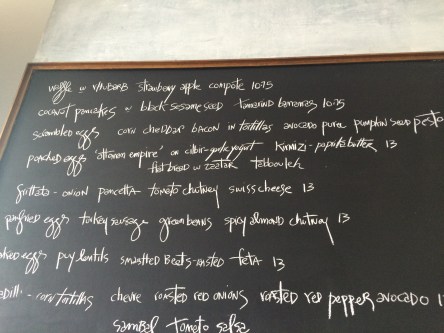 waffle w rhubarb strawberry apple compote 10.75
coconut pancakes w black sesame seed tamarind bananas 10.75
scrambled eggs corn cheddar bacon in tortillas avocado puree pumpkin seed pesto
poached eggs "ottoman empire" on garlic yogurt Kirmizi - paprika butter 13
flat bread w zaatar tabbouleh
frittata - onion pancetta tomato chutney swiss cheese 13
panfried eggs turkey sausage green beans spicy almond chutney 13
eggs puy lentils smashed beets - roasted feta 13
corn tortillas chevre roasted red onions roasted red pepper avocado
sambal tomato salsa